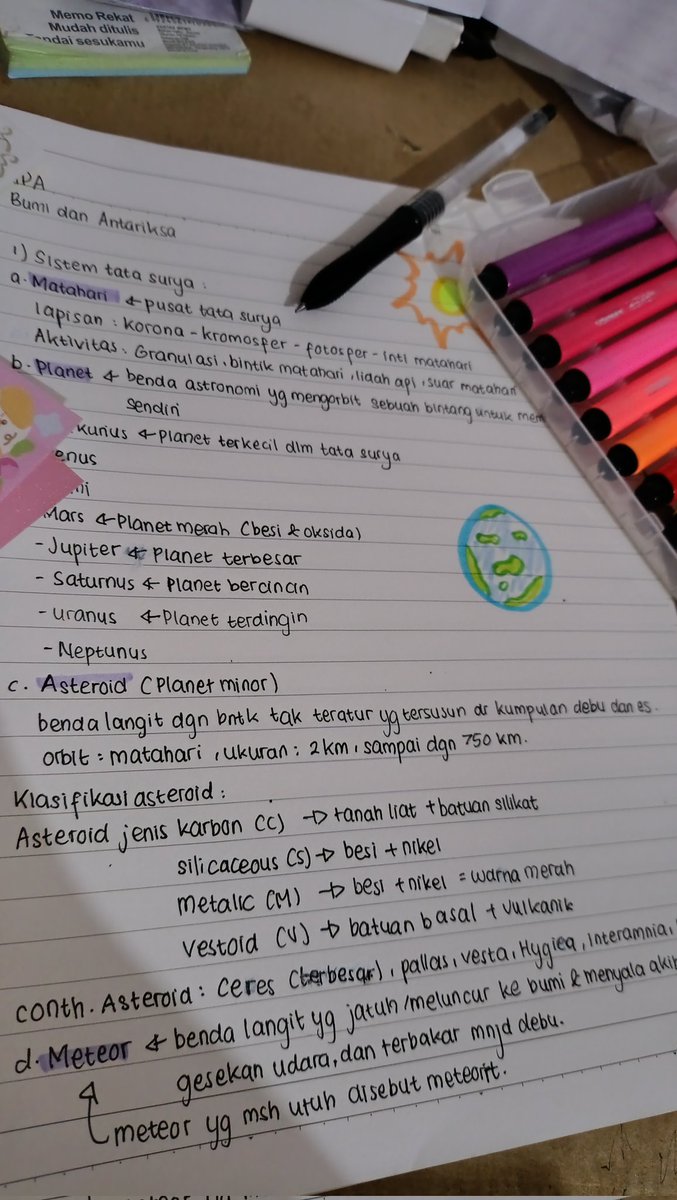 Memo Rekat
Mudah ditulis
Tandai sesukamu
IPA
Bumi dan Antariksa
1) Sistem tata surya :
a. Matahari ← pusat tata surya
lapisan : korona - kromosfer - fotosfer - inti matahari
Aktivitas. Granulasi, bintik matahari, lidah api, suar matahari
b. Planet ← benda astronomi yg mengorbit sebuah bintang untuk mem
sendiri
kurius ← planet terkecil dlm tata surya
enus
mi
Mars ← Planet merah (besi & oksida)
- Jupiter ← Planet terbesar
- Saturnus ← Planet bercincin
- uranus ← Planet terdingin
- Neptunus
c. Asteroid (Planet minor)
benda langit dgn bntk tak teratur yg tersusun dr kumpulan debu dan es.
orbit : matahari, ukuran : 2 km, sampai dgn 750 km.
Klasifikasi asteroid :
Asteroid jenis karbon (C) → tanah liat + batuan silikat
silicaceous (S) → besi + nikel
metalic (M) → besi + nikel = warna merah
vestoid (V) → batuan basal + vulkanik
conth. Asteroid : Ceres (terbesar), pallas, vesta, Hygiea, Interamnia,
d. Meteor ← benda langit yg jatuh/meluncur ke bumi & menyala akib
gesekan udara, dan terbakar mnjd debu.
meteor yg msh utuh disebut meteorit.